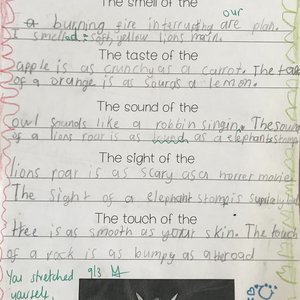 The smell of the
our
a burning fire interrupting are plan.
I smelled soft yellow lions main.
The taste of the
apple is as crunchy as a carrot. The taste
of a orange is as sourgs a lemon.
The sound of the
owl sounds like a robbin singin. The sound
of a lions roar is as as a elephant stomp
The sight of the
lions roar is as scary as a horrer movie
The sight of a elephant stomp is
The touch of the
tree is as smooth as your skin. The touch
of a rock is as bumpy as a road
You stretched 9/3
yourself.